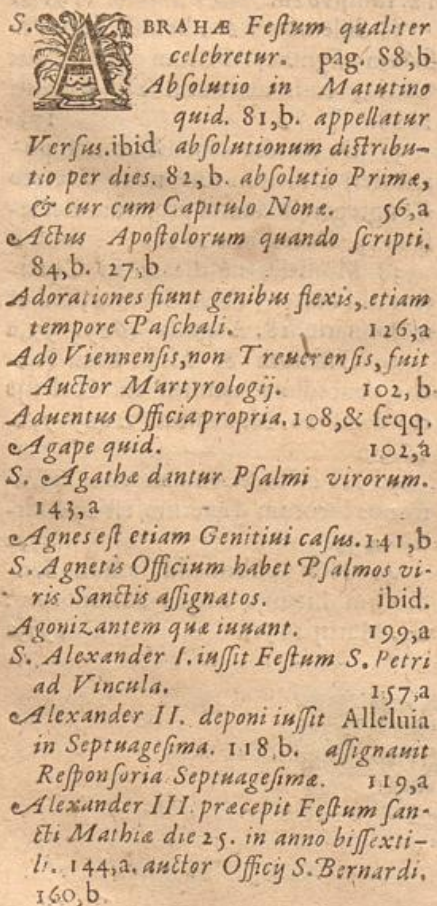 S. ABRAHÆ Feſtum qualiter
celebretur. pag. 88,b
Abſolutio in Matutino
quid. 81,b. appellatur
Verſus.ibid abſolutionum diſtribu-
tio per dies. 82,b. abſolutio Primæ,
& cur cum Capitulo Nonæ. 56,a
Actus Apoſtolorum quando ſcripti.
84,b. 27,b
Adorationes fiunt genibus flexis, etiam
tempore Paſchali. 126,a
Ado Viennenſis,non Treuerenſis, fuit
Auctor Martyrologij. 102,b
Aduentus Officia propria. 108,& ſeqq.
Agape quid. 102,a
S. Agathæ dantur Pſalmi virorum.
143,a
Agnes eſt etiam Genitiui caſus. 141,b
S. Agnetis Officium habet Pſalmos vi-
ris Sanctis aſſignatos. ibid.
Agonizantem quæ iuuant. 199,a
S. Alexander I. iuſſit Feſtum S. Petri
ad Vincula. 157,a
Alexander II. deponi iuſſit Alleluia
in Septuageſima. 118,b. aſſignauit
Reſponſoria Septuageſimæ. 119,a
Alexander III. præcepit Feſtum ſan-
cti Mathiæ die 25. in anno biſſexti-
li. 144,a. auctor Officij S. Bernardi.
160,b